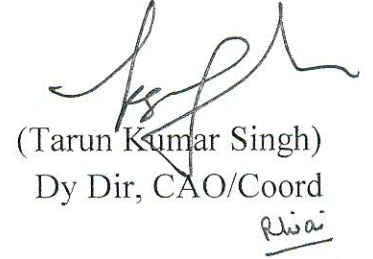 (Tarun Kumar Singh)
Dy Dir, CAO/Coord